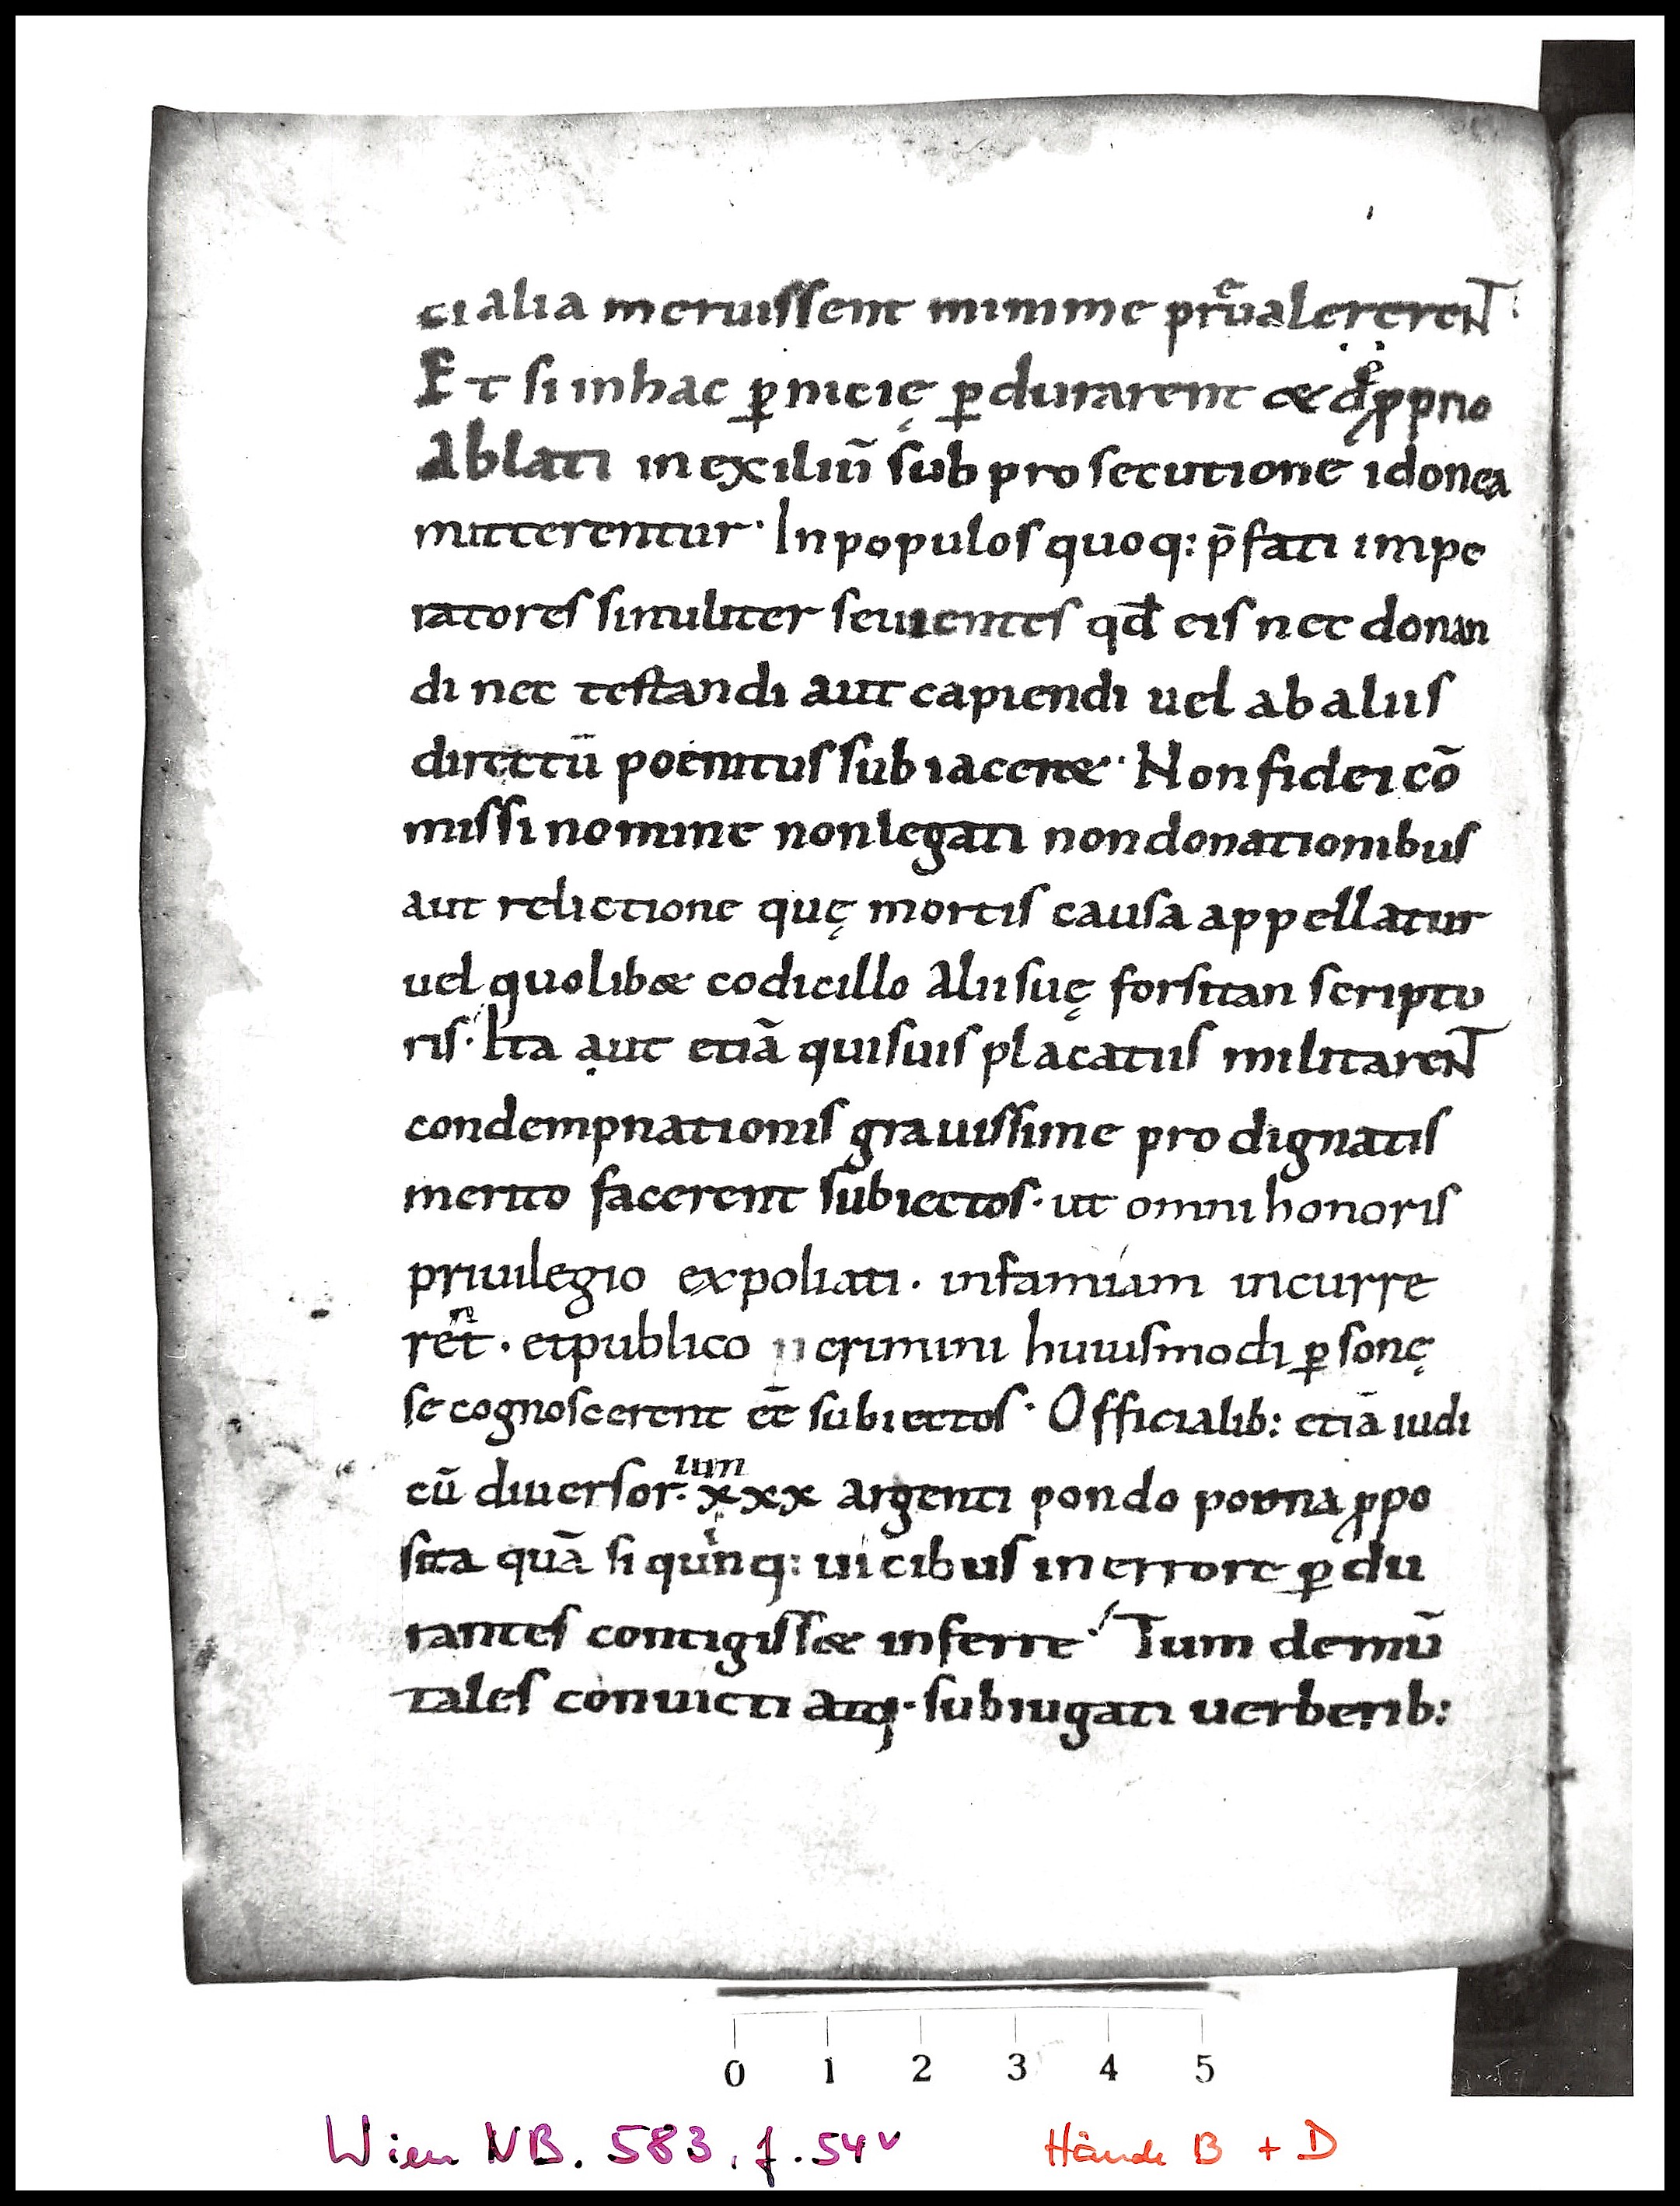 cialia meruissent minime pr̄ualererenT
Et si inhac ꝑnicię ꝑdurarent & d ꝓprio
Ablati inexiliū sub prosecutione idonea
mitterentur· In populos quoq: p̄fati impe
ratores similiter seuientes qđ eis nec donan
di nec testandi aut capiendi uel ab aliis
directū poenitus subiacer&· Non fidei cō
missi nomine non legati non donationibus
aut relictione quę mortis causa appellatur
uel quolib& codicillo Alii suę forsitan scriptu
ris· Ita aut etiā quisuis placatiis militarenT
condempnationis grauissime pro dignatis
merito facerent subiectos· ut omni honoris
priuilegio expoliati· infamiam incurre
n
ret· et publico crimini huiusmodi ꝑsonę
se cognoscerent eē subiectos· Officialib: etiā iudi
ium
cū diuersor· xxx argenti pondo poena ꝓpo
sita quā si quinq: uicibus in errore ꝑdu
rantes contigiss& inferre· Tum demū
tales conuicti atq· subiugati uerberib:
0 1 2 3 4 5
Wien NB. 583, f. 54v Hände B + D